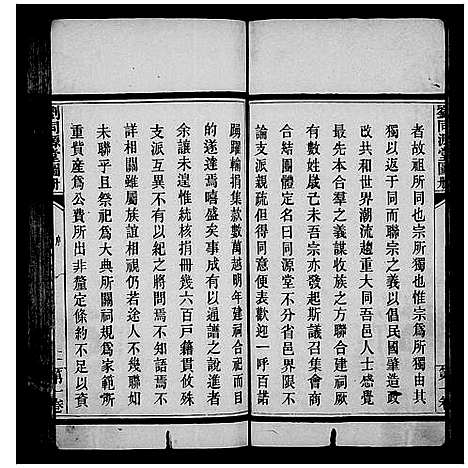 劉同源堂圖冊
者故祖所同也宗所獨也惟宗爲所獨由其
獨以返於同而聯宗之義以倡民國肇造政
改共和世界潮流趨重大同吾邑人士感覺
最先本合羣之義謀收族之方聯合建祠厥
有數姓歲己未吾宗亦發起斯議召集會商
合結團體定名曰同源堂不分省邑界限不
論支派親疏但得同意便表歡迎一呼百諾
踴躍輸捐集款數萬越明年建祠合祀而目
的遂達焉嘻盛矣事成有以通譜之說進者
余讓未遑惟統核捐冊幾六百戶籍貫攸殊
支派互異不有以紀之將問焉不知語焉不
詳相關雖屬族誼相視仍若途人不幾聯如
未聯乎且祭祀爲大典所關祠規爲家範所
重貲產爲公費所出非釐定條約不足以資
劉同源堂圖冊
第一卷